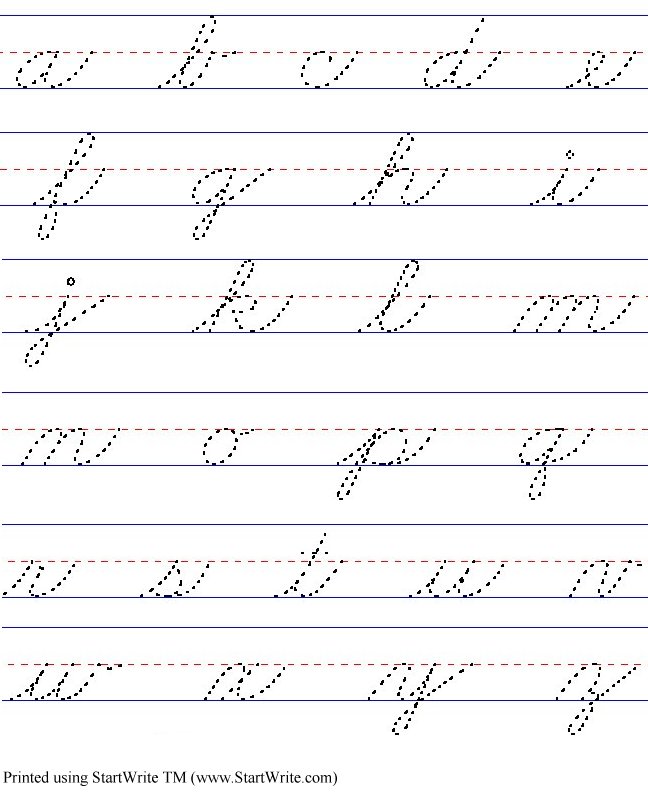 a b c d e
f g h i
j k l m
n o p q
r s t u v
w x y z
Printed using StartWrite TM (www.StartWrite.com)